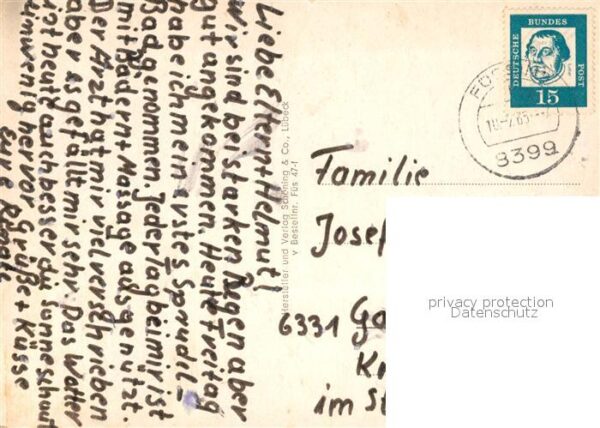 Liebe Eltern + Helmut!
Wir sind bei starken Regen aber
gut angekommen. Heute Freitag
habe ich mein erstes Sprudil-
Bad genommen. Jeder Tag bei mir ist
mit Bädern + Massage ausgenützt.
Der Arzt hat mir viel verschrieben
aber es gefällt mir sehr. Das Wetter
ist heute auch besser, die Sonne schaut
ein wenig hervor. Grüße + Küsse
Eure Renate
Hersteller und Verlag Schöning & Co., Lübeck
v Bestellnr. Füs 47-1
DEUTSCHE
BUNDES
POST
15
18.-7.63
8399
Familie
Josef
6331 Ga
K
im St
privacy protection
Datenschutz